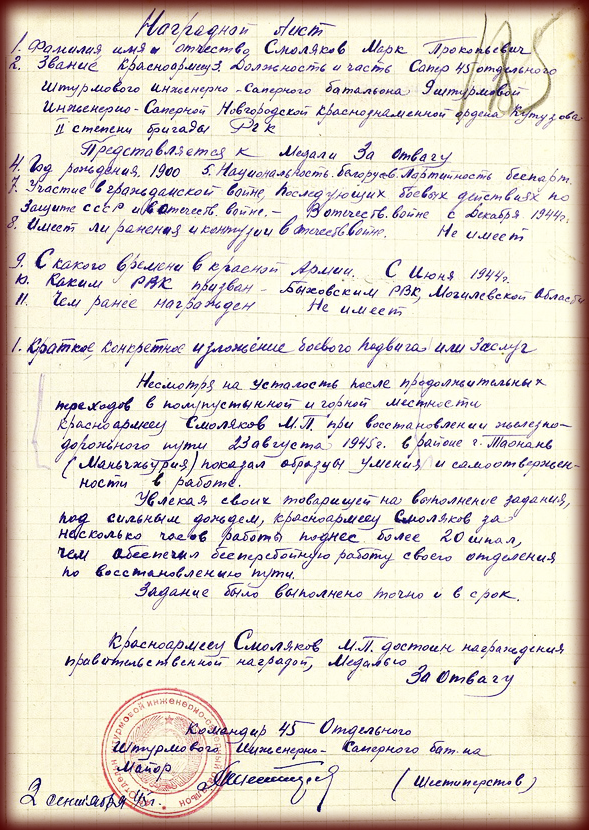 Наградной лист
185
1. Фамилия имя и отчество Смоляков Марк Прокопьевич
2. Звание красноармеец 3. Должность и часть Сапер 45 отдельного
штурмового инженерно-саперного батальона 9 штурмовой
Инженерно-Саперной Новгородской Краснознаменной ордена Кутузова
II степени бригады РГК
Представляется к Медали За Отвагу
4. Год рождения 1900 5. Национальность. белорус 6. Партийность беспарт.
7. Участие в гражданской войне, последующих боевых действиях по
Защите СССР и в отечеств. войне. – В отечеств. войне с Декабря 1944г.
8. Имеет ли ранения и контузии в отечеств войне. Не имеет
9. С какого времени в красной Армии. С Июня 1944г.
10. Каким РВК призван – Быховским РВК, Могилевской области
11. Чем ранее награжден Не имеет
1. Краткое, конкретное изложение боевого подвига или заслуг
Несмотря на усталость после продолжительных
переходов в полупустынной и горной местности
красноармеец Смоляков М.П. при восстановлении железно-
дорожного пути 23 августа 1945г. в районе г. Таонань
(Маньчжурия) показал образцы умения и самоотвержен-
ности в работе.
Увлекая своих товарищей на выполнение задания,
под сильным дождем, красноармеец Смоляков за
несколько часов работы поднес более 20 шпал,
чем обеспечил бесперебойную работу своего отделения
по восстановлению пути.
Задание было выполнено точно и в срок.
Красноармеец Смоляков М.П. достоин награждения
правительственной наградой, Медалью
За Отвагу
Командир 45 Отдельного
Штурмового Инженерно-Саперного бат-на
Майор (Шестиперстов)
2 сентября 45г.